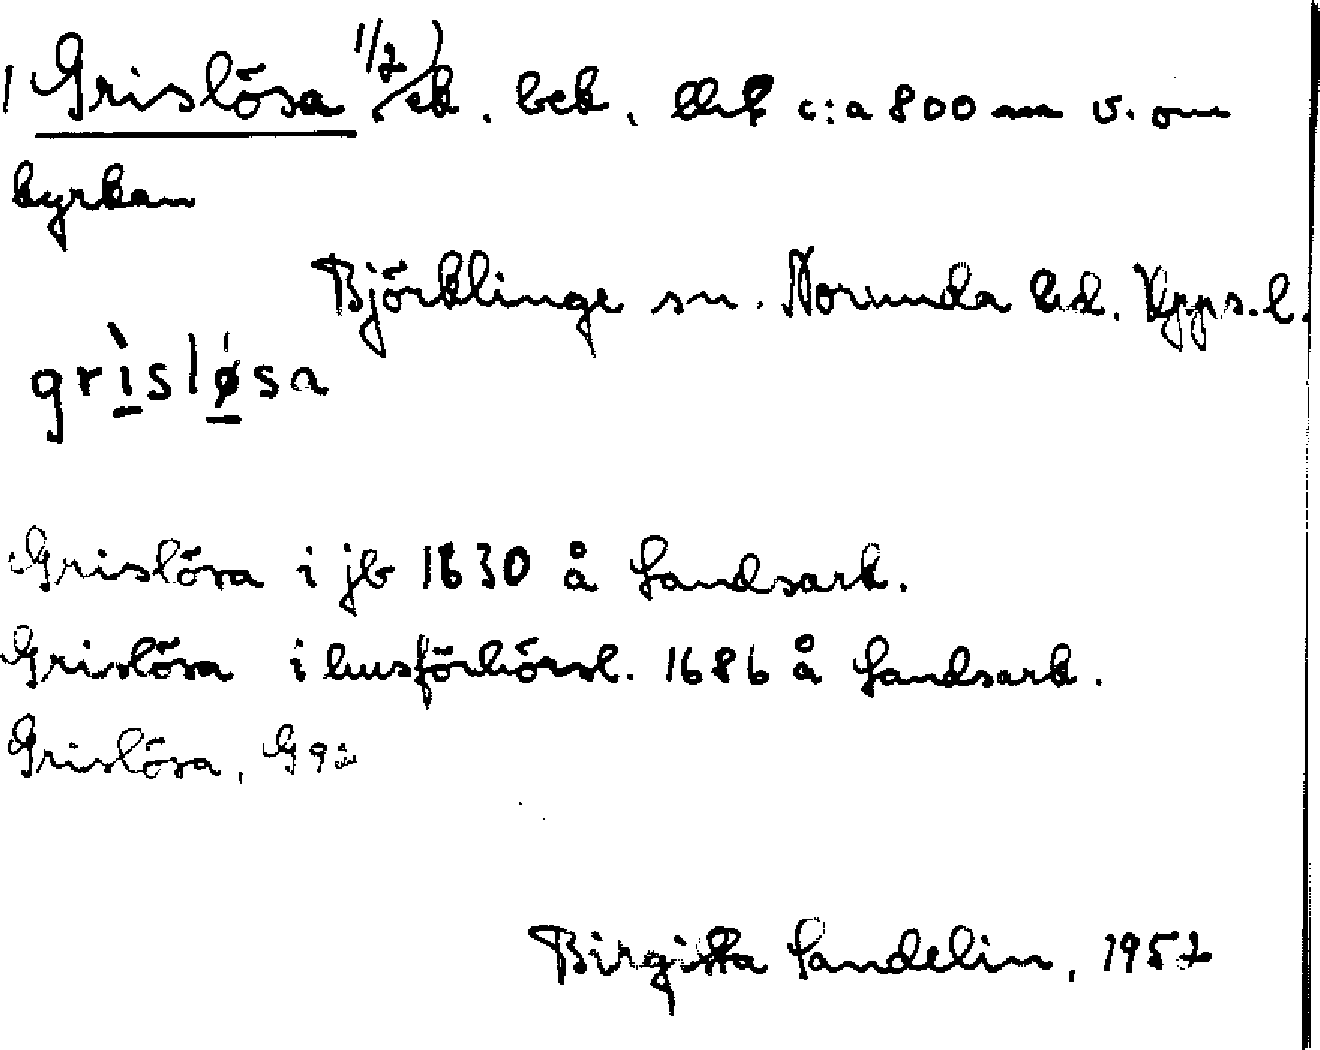 1 Grislösa 1/2) sk. bek. c:a 800 m v. om
kyrkan
Björklinge sn. Norunda hd. Upps. l.
grìsløsa
Grislösa i jb 1630 å Landsark.
Grislösa i husförhörsl. 1686 å Landsark.
Grislösa, G
Birgitta Sandelin, 1952